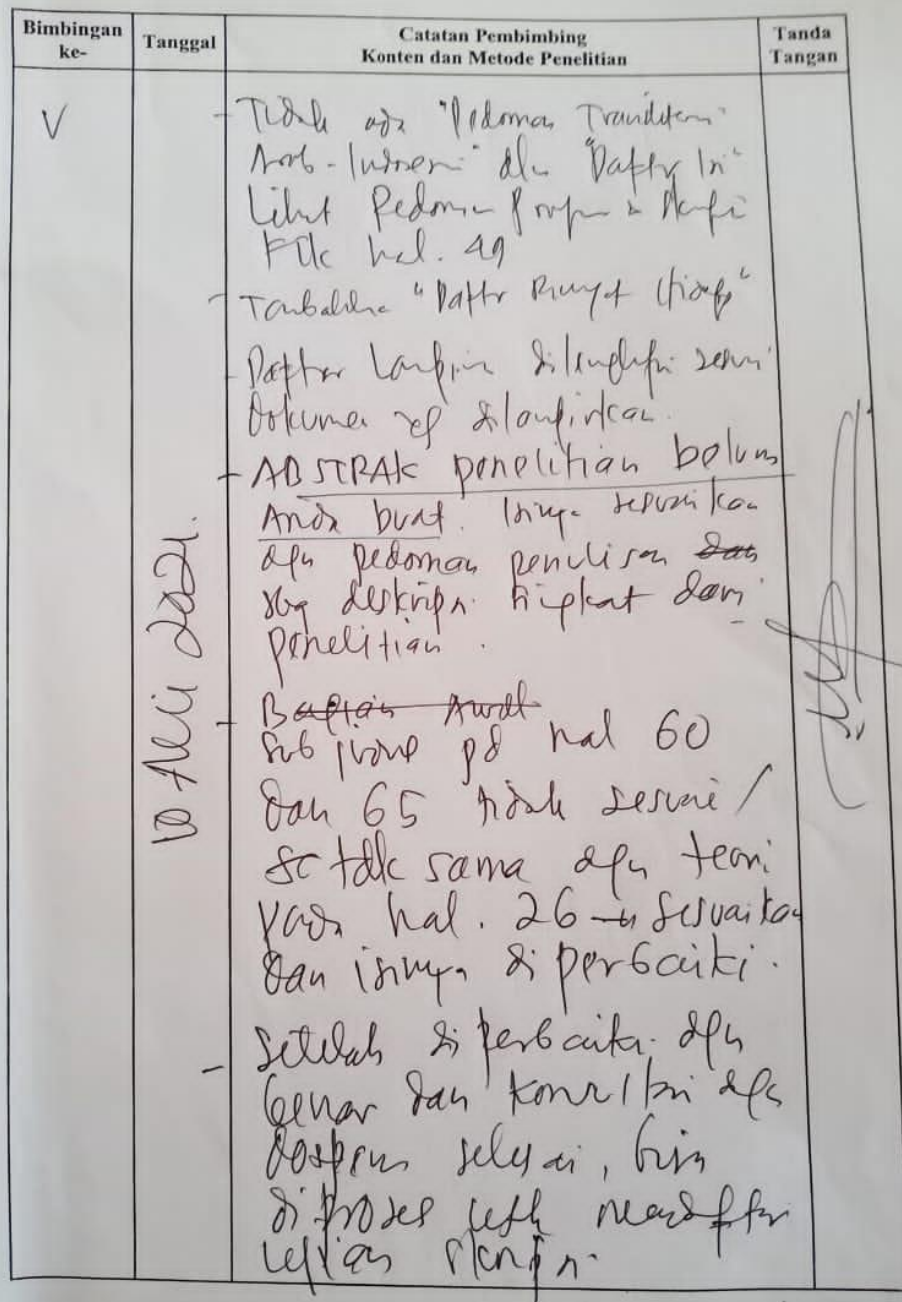 Bimbingan ke-
Tanggal
Catatan Pembimbing
Konten dan Metode Penelitian
Tanda Tangan
V
- Tidak ada "Pedoman Transliterasi
Arab-Indonesia" dlm "Daftar Isi"
Lihat Pedoman Skripsi
FTK hal. 49
- Tambahkan "Daftar Riwayat Hidup"
- Daftar Lampiran dilengkapi sesuai
Dokumen yg dilampirkan.
- ABSTRAK penelitian belum
Anda buat. Isinya sesuaikan
dgn pedoman penulisan dan
sbg deskripsi singkat dari
penelitian.
- Bagian Awal
Sub judul pd hal 60
dan 65 tidak sesuai/
tdk sama dgn teori
pada hal. 26 → sesuaikan
dan isinya diperbaiki.
- Setelah diperbaiki dgn
benar dan konsultasi dgn
selesai, bisa
diproses utk mendaftar
ujian skripsi.
2021.